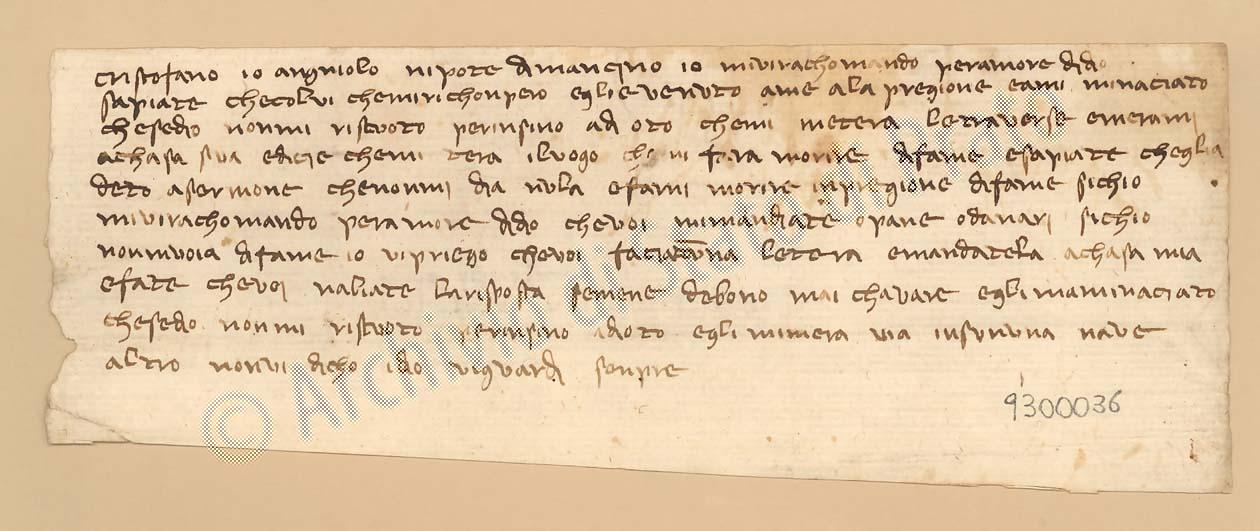 cristofano io angniolo nipote dimancino io mivirachomando peramore didio
sapiate checolui chemirichonpero eglie venuto ame ala pregione eami minaciato
chesedio nonmi riscuoto perinsino ad oto chemi metera letraverse emerami
achasa sua edicie chemi tera iluogo che mi fara morire difame esapiate cheglia
deto asermone chenonmi dia nula efami morire inpregione difame sichio
mivirachomando peramore didio chevoi mimandiate opane odanari sichio
nonmuoia difame io vipriegho chevoi faciate una letera emandatela achasa mia
efate chevoi nabiate larisposta semene debono mai chavare eglimaminaciato
chesedio nonmi riscuoto perinsino adoto eglimimera via insununa nave
altro nonvi dicho idio viguardi senpre
9300036
© Archivio di Stato di Prato